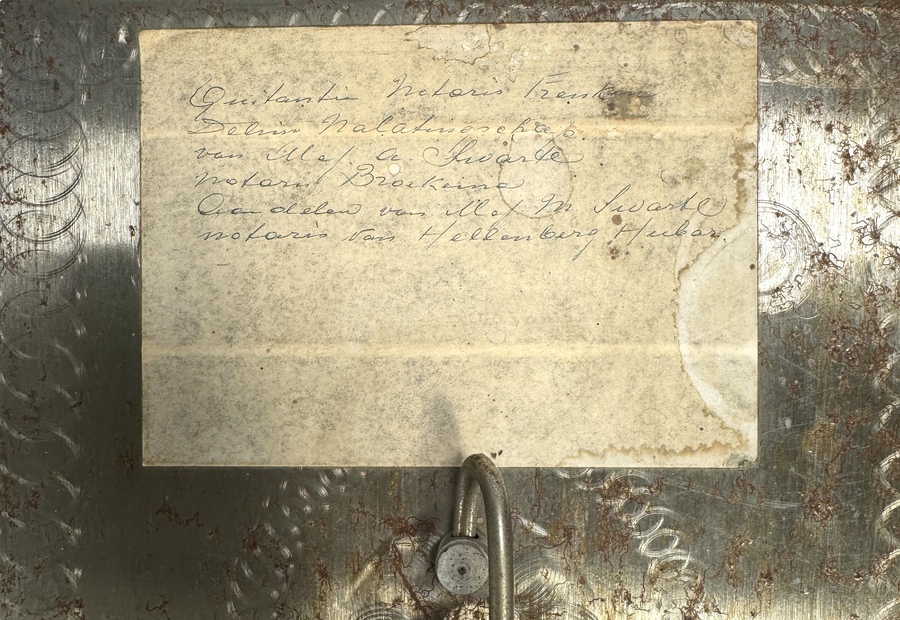 Quitantie Notaris
Nalatenschap
van Mej. A. Swarte
Notaris Broekema
Aandelen van Mej M Swarte
notaris van Hellenberg Hubar.